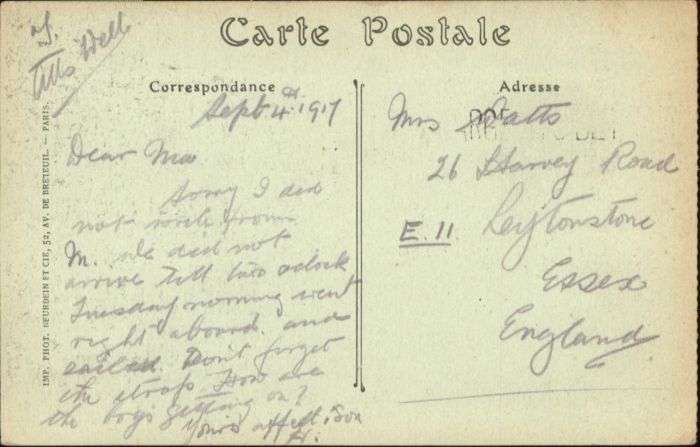 Carte Postale
Correspondance
Adresse
All's Well
Sept 4th. 1917
Dear Ma
Sorry I did
not write from
M. we did not
arrive till two oclock
Tuesday morning went
right aboard. and
sailed. Don't forget
the straps How are
the boys getting on?
Yours affect. Son
H.
Mrs Batts
26 Harvey Road
E. 11 Leytonstone
Essex
England
IMP. PHOT. NEURDEIN ET CIE, 52, AV. DE BRETEUIL. — PARIS.